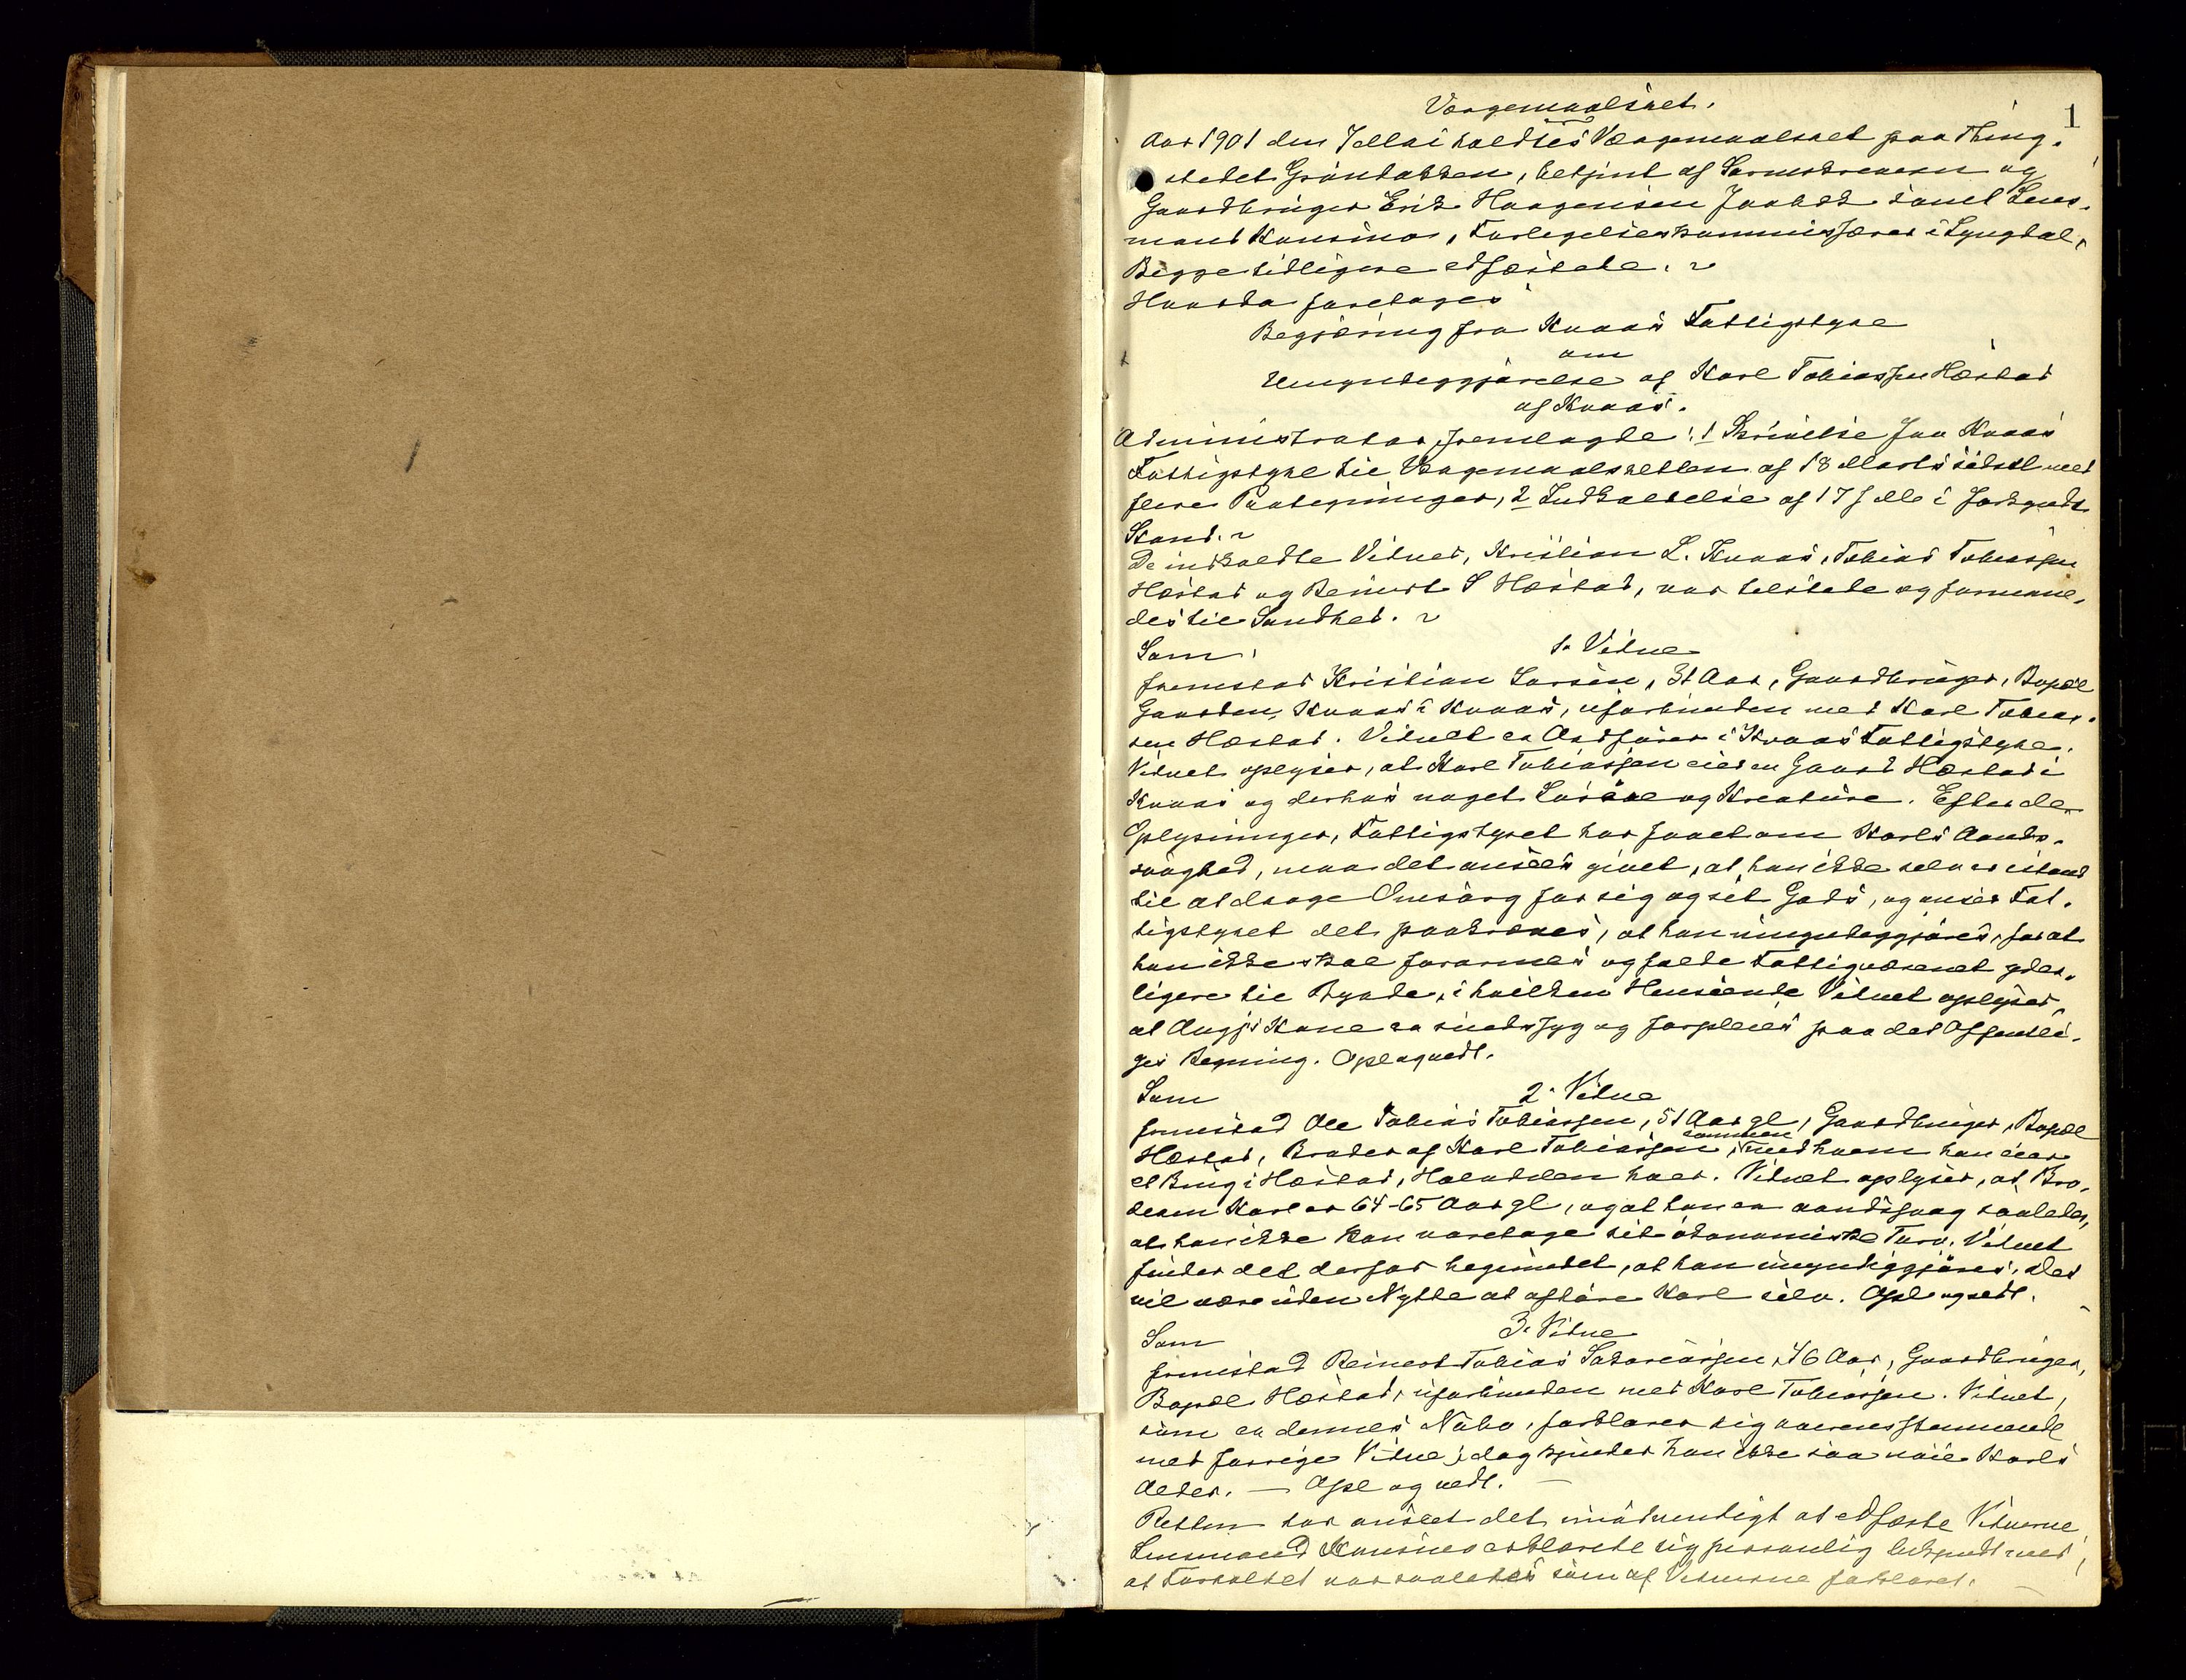 1
Værgemaalsret.
Aar 1901 den 7 Mai holdtes Værgemaalsret paa Thing-
stedet Gründokken, betjent af Sorenskriveren og
Gaardbruger Erik Haagensen Jaabæk samt Lens-
mand Mensinor, Forlegelseskommissærer i Lyngdal,
Begge tidligere edfæstede. ~
Hvorda foretoges
Begjæring fra Kvaas Fattigstyre
om
Umyndeggjørelse af Karl Tobiassen Hæstad
af Kvaas.
Administrator fremlagde: 1 Skrivelse fra Kvaas
Fattigstyre til Værgemaalsretten af 18 Marts sidstl med
flere Paategninger, 2 Indkaldelse af 17 f M i forkyndt
Stand. ~
De indkaldte Vidner, Kristian L. Kvaas, Tobias Tobiassen
Hæstad og Reinert S Hæstad, var tilstede og formane-
des til Sandhed. ~
Som 1. Vidne
fremstod Kristian Larsen, 31 Aar, Gaardbruger, Bopæl
Gaarden Kvaas i Kvaas, uforbunden med Karl Tobias-
sen Hæstad. Vidnet er Ordfører i Kvaas Fattigstyre.
Vidnet oplyser, at Karl Tobiassen eier en Gaard Hæstad i
Kvaas og derhos noget Løsøre og Kreature. Efter de
Oplysninger, Fattigstyret har faaet om Karls Aands-
svaghed, maa det ansees givet, at han ikke selv er istand
til at drage Omsorg for sig og sit Gods, og anser Fat-
tigstyret det paakræves, at han umyndeggjøres, for at
han ikke skal forarmes og falde Fattigvæsenet yder-
ligere til Byrde, i hvilken Henseende Vidnet oplyser,
at Angjs Kone er sindssyg og forpleies paa det Offentli-
ges Regning. Opl og vedt.
Som 2. Vidne
fremstod Ole Tobias Tobiassen, 51 Aar gl, Gaardbruger, Bopæl
Hæstad, Broder af Karl Tobiassen, sammen med hvem han eier
et Brug i Hæstad, Halvdelen hver. Vidnet oplyser, at Bro-
deren Karl er 64-65 Aar gl, og at han er aandssvag saaledes,
at han ikke kan varetage sit økonomiske Tarv. Vidnet
finder det derfor begrundet, at han umyndiggjøres. Det
vil være uden Nytte at afhøre Karl selv. Opl og vedt.
Som 3. Vidne
fremstod Reinert Tobias Sakariassen, 46 Aar, Gaardbruger,
Bopæl Hæstad, uforbunden med Karl Tobiassen. Vidnet,
som er dennes Nabo, forklarer sig overensstemmende
med forrige Vidne; dog kjender han ikke saa nøie Karls
Alder. — Opl og vedt. —
Retten har anseet det unødvendigt at edfæste Vidnerne,
Lensmand Mensinor erklærede sig personlig bekjendt med,
at Forholdet var saaledes som af Vidnerne forklaret. —